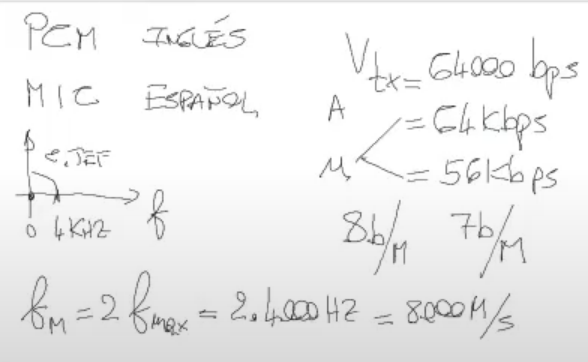 PCM INGLÉS
MIC ESPAÑOL
C.TEF
0 4KHZ f
Vtx = 64000 bps
A = 64Kbps
μ = 56Kbps
8b/M 7b/M
fM = 2 fmax = 2.4000 HZ = 8000 M/s